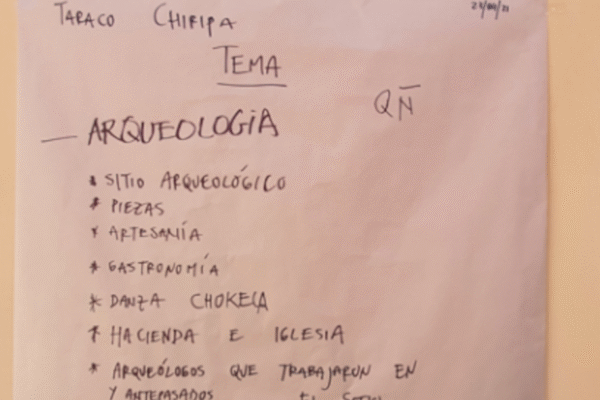 TARACO CHIRIPA
TEMA
QÑ
— ARQUEOLOGIA
* SITIO ARQUEOLÓGICO
* PIEZAS
* ARTESANÍA
* GASTRONOMÍA
* DANZA CHOKELA
* HACIENDA E IGLESIA
* ARQUEÓLOGOS QUE TRABAJARON EN
Y ANTEPASADOS EL SITIO